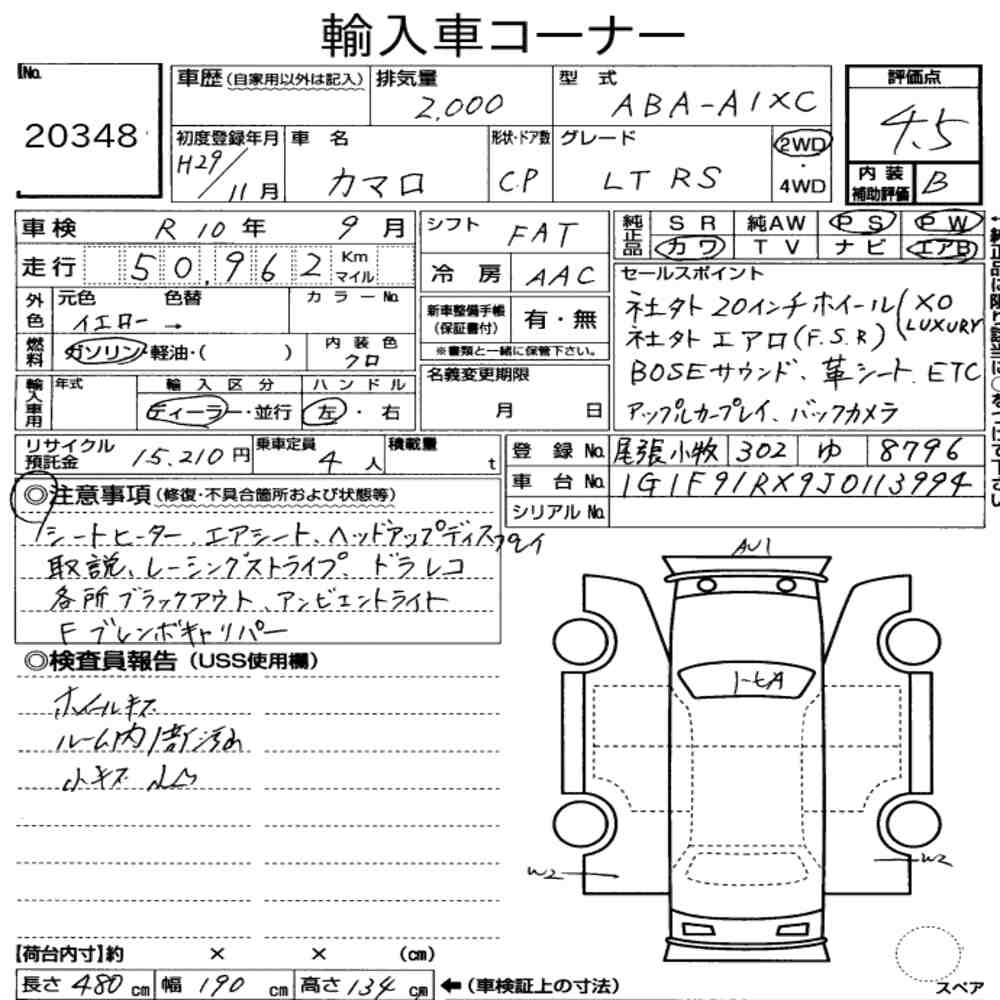 輸入車コーナー
No. 20348
車歴(自家用以外は記入) 排気量 2,000 型式 ABA-A1XC
評価点 4.5
初度登録年月 H29/11月 車名 カマロ 形状・ドア数 CP グレード LT RS 2WD・4WD
内装補助評価 B
車検 R10年 9月 シフト FAT
純正品 SR 純AW PS PW
カワ TV ナビ エアB
走行 50,962 Km マイル 冷房 AAC
外色 元色 イエロー → 色替 カラーNo.
新車整備手帳(保証書付) 有・無
※書類と一緒に保管下さい。
燃料 ガソリン・軽油・( ) 内装色 クロ
輸入車用 年式 輸入区分 ディーラー・並行 ハンドル 左・右
名義変更期限 月 日
セールスポイント
社外20インチホイール(XO
社外エアロ(F.S.R) LUXURY
BOSEサウンド、革シート、ETC
アップルカープレイ、バックカメラ
リサイクル預託金 15.210円 乗車定員 4人 積載量 t
登録No. 尾張小牧 302 ゆ 8796
車台No. 1G1F91RX9J0113994
シリアルNo.
◎注意事項(修復・不具合箇所および状態等)
シートヒーター、エアシート、ヘッドアップディスプレイ
取説、レーシングストライプ、ドラレコ
各所ブラックアウト、アンビエントライト
Fブレンボキャリパー
◎検査員報告(USS使用欄)
ホイールキズ
ルーム内
小キズ
AU1
トセA
W2
W2
【荷台内寸】約 × × (cm)
長さ 480cm 幅 190cm 高さ 134cm ←(車検証上の寸法)
スペア